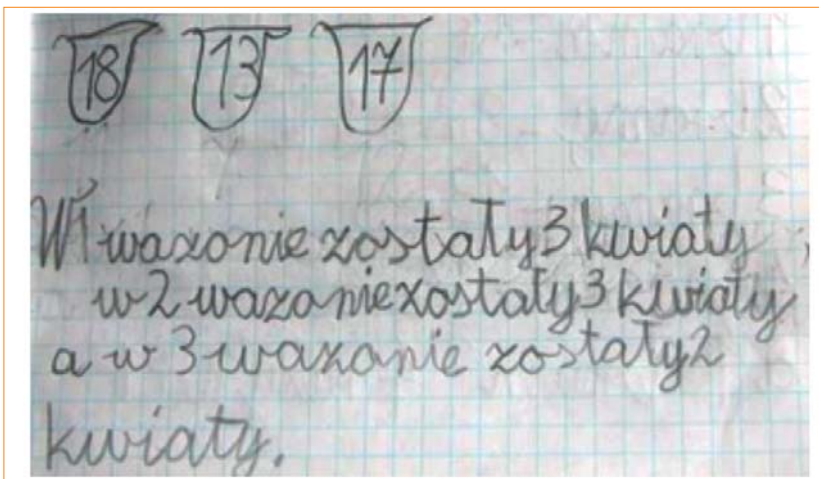 18 13 17
W 1 wazonie zostały 3 kwiaty,
w 2 wazonie zostały 3 kwiaty
a w 3 wazonie zostały 2
kwiaty.